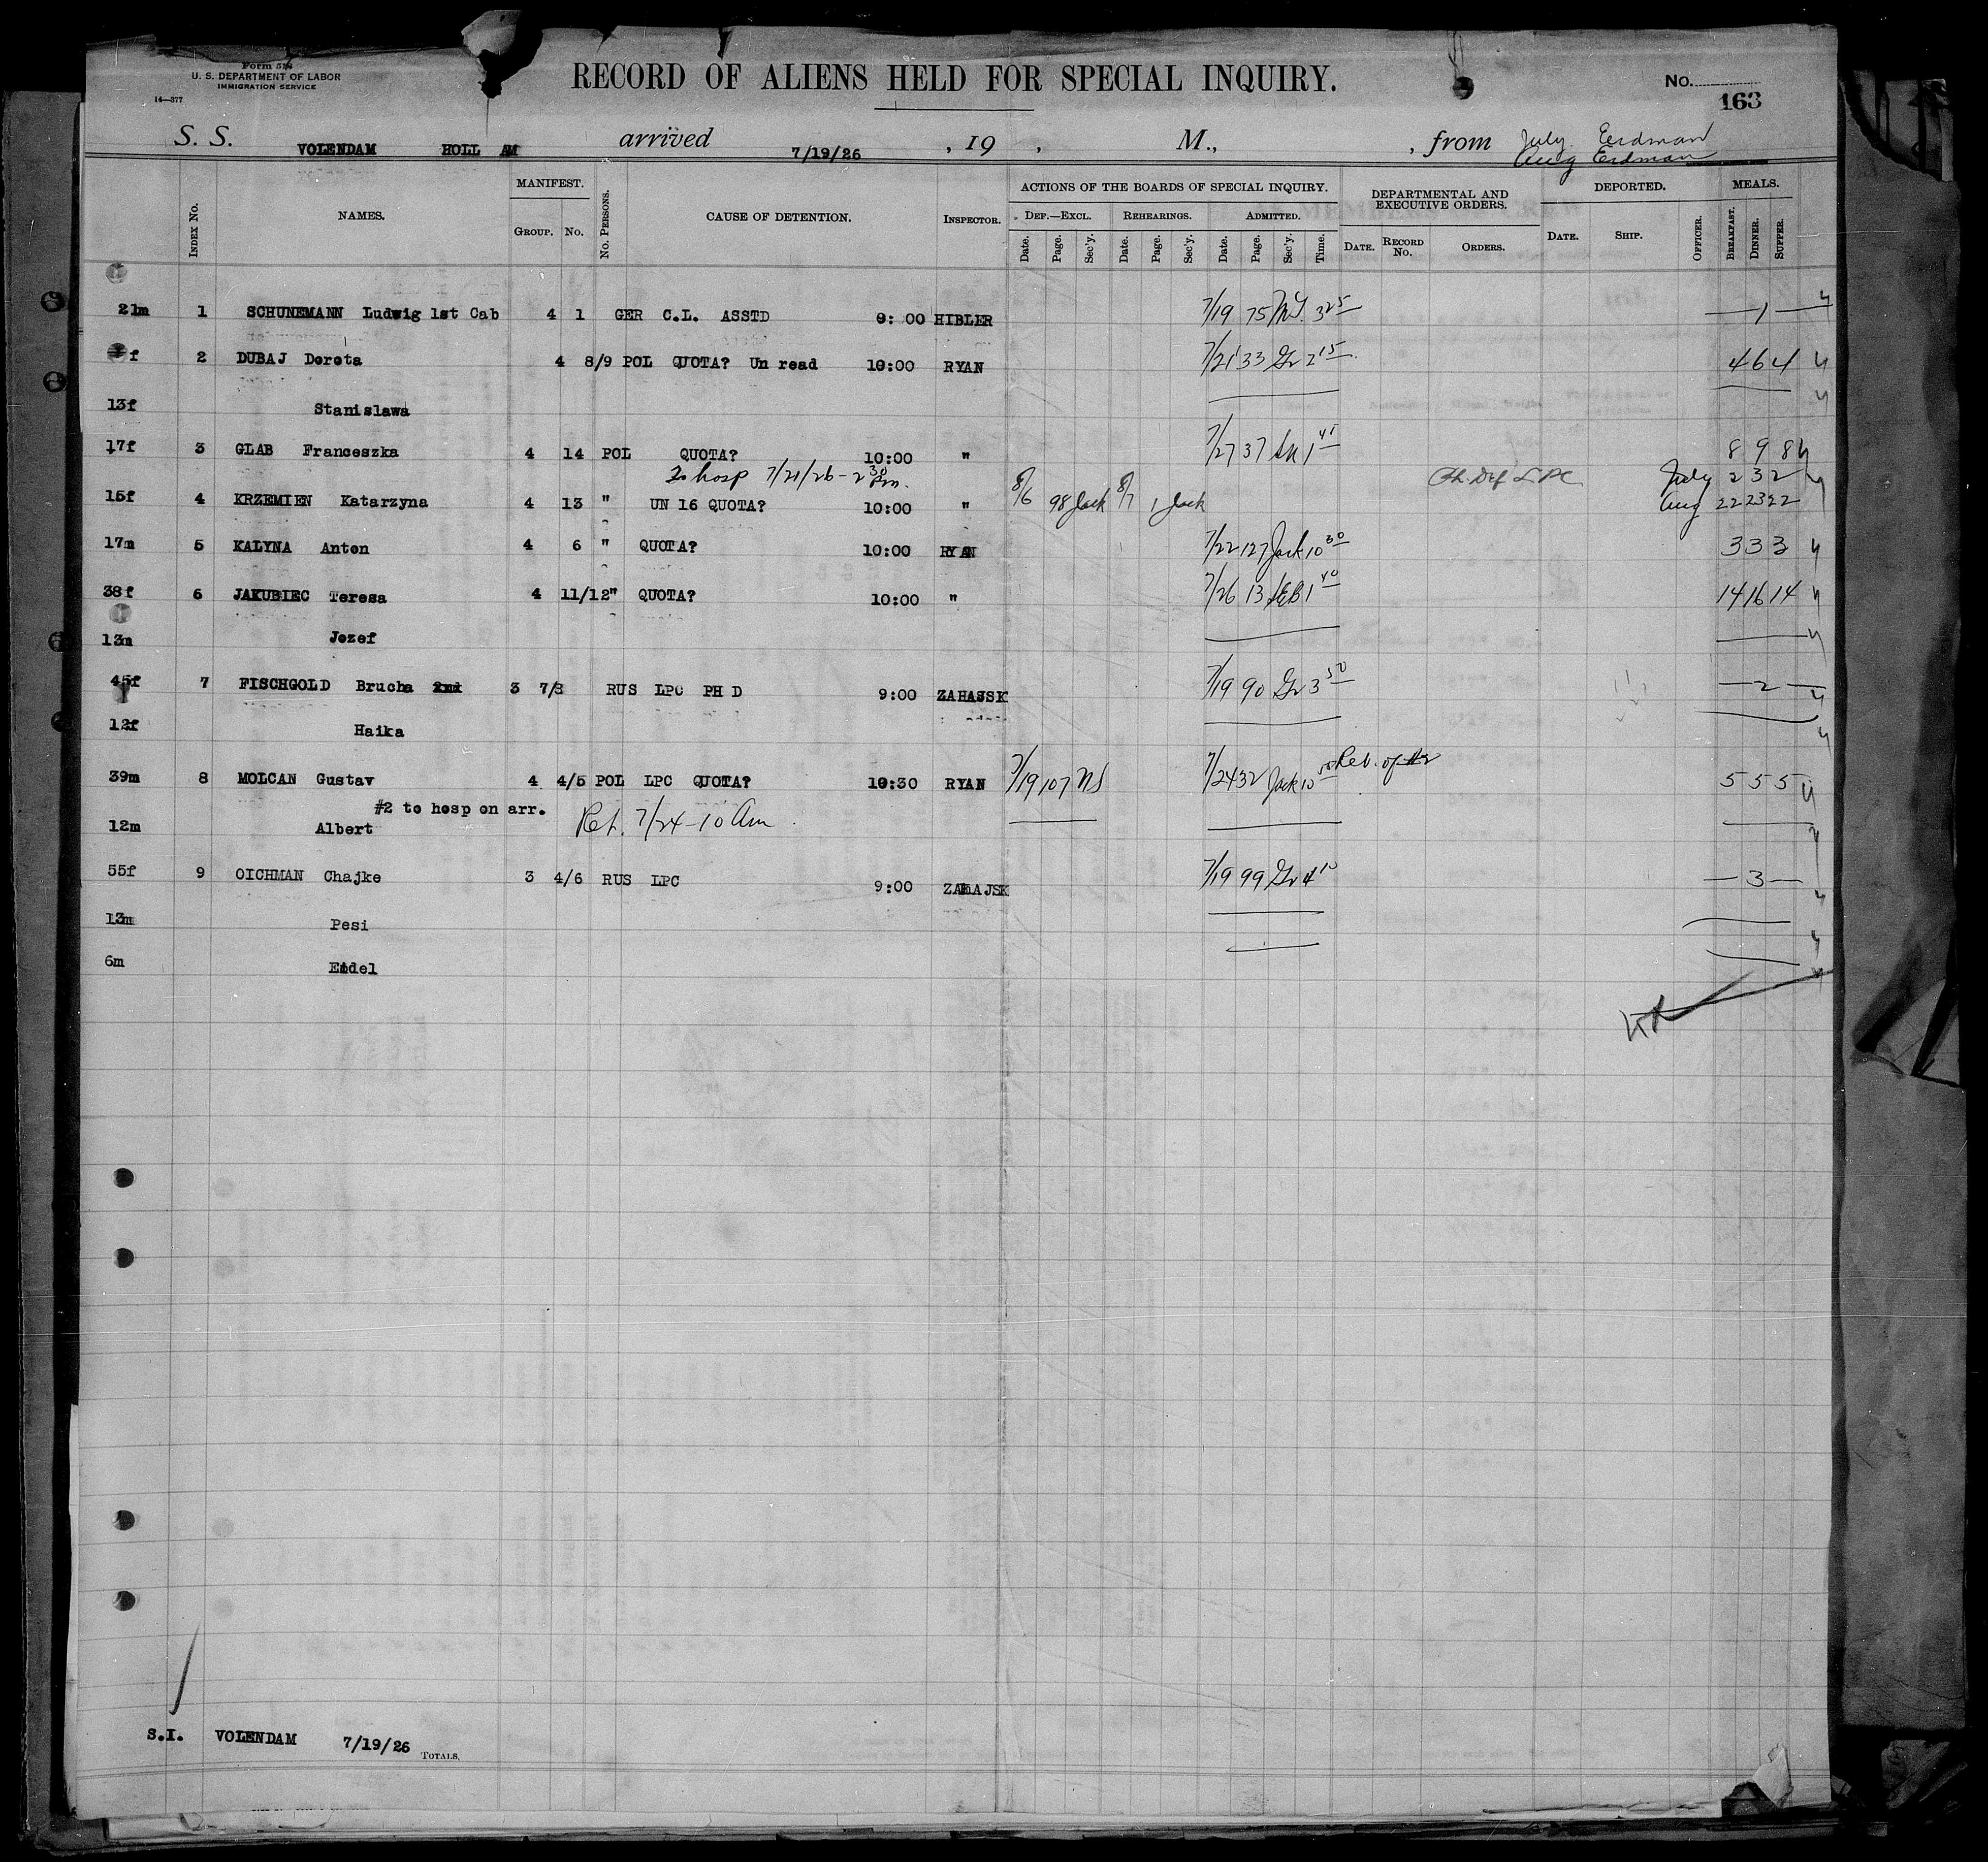 Form 514
U. S. DEPARTMENT OF LABOR
IMMIGRATION SERVICE
14—377
RECORD OF ALIENS HELD FOR SPECIAL INQUIRY.
No. 163
S. S. VOLENDAM HOLL AM arrived 7/19/26 , 19 , M., , from July Eerdman
Aug Erdman
INDEX No. NAMES. MANIFEST. GROUP. No. No. PERSONS. CAUSE OF DETENTION. INSPECTOR. ACTIONS OF THE BOARDS OF SPECIAL INQUIRY. DEPARTMENTAL AND EXECUTIVE ORDERS. DEPORTED. MEALS.
DEF.—EXCL. REHEARINGS. ADMITTED.
Date. Page. Sec'y. Date. Page. Sec'y. Date. Page. Sec'y. Time. DATE. RECORD No. ORDERS. DATE. SHIP. OFFICER. BREAKFAST. DINNER. SUPPER.
21m 1 SCHUNEMANN Ludwig 1st Cab 4 1 GER C.L. ASSTD 9:00 HIBLER 7/19 75 3 25 — 1 —
f 2 DUBAJ Doreta 4 8/9 POL QUOTA? Un read 10:00 RYAN 7/21 33 Gr 2 15 4 6 4
13f Stanislawa
17f 3 GLAB Franceszka 4 14 POL QUOTA? 10:00 " 7/27 37 1 45 8 9 8
To hosp 7/21/26 - 2 30 Pm. July 2 3 2
15f 4 KRZEMIEN Katarzyna 4 13 " UN 16 QUOTA? 10:00 " 8/6 98 Jack 8/7 1 Jack LPC Aug 22 23 22
17m 5 KALYNA Anton 4 6 " QUOTA? 10:00 RYAN 7/22 127 Jack 10 30 3 3 3
38f 6 JAKUBIEC Teresa 4 11/12 " QUOTA? 10:00 " 7/26 13 1 40 14 16 14
13m Jozef
45f 7 FISCHGOLD Brucha 2nd 3 7/8 RUS LPC PH D 9:00 7/19 90 Gr 3 50 — 2 —
12f Haika
39m 8 MOLCAN Gustav 4 4/5 POL LPC QUOTA? 10:30 RYAN 7/19 107 NS 7/24 32 Jack 10 50 5 5 5
#2 to hosp on arr.
12m Albert Ret. 7/24 - 10 Am
55f 9 OICHMAN Chajke 3 4/6 RUS LPC 9:00 7/19 99 Gr 4 10 — 3 —
13m Pesi
6m Eidel
S.I. VOLENDAM 7/19/26 TOTALS.